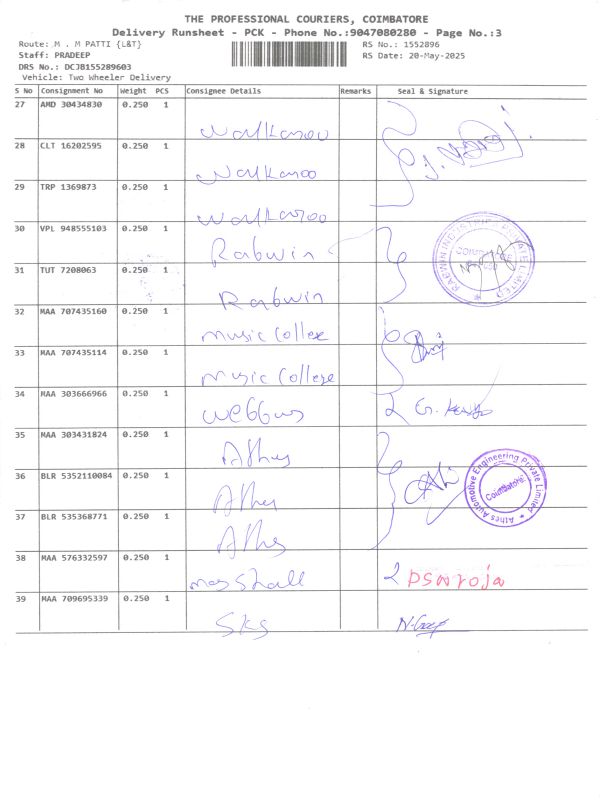 THE PROFESSIONAL COURIERS, COIMBATORE
Delivery Runsheet - PCK - Phone No.:9047080280 - Page No.:3
Route: M . M PATTI {L&T}
RS No.: 1552896
Staff: PRADEEP
RS Date: 20-May-2025
DRS No.: DCJB155289603
Vehicle: Two Wheeler Delivery
S No Consignment No Weight PCS Consignee Details Remarks Seal & Signature
27 AMD 30434830 0.250 1
28 CLT 16202595 0.250 1
29 TRP 1369873 0.250 1
30 VPL 948555103 0.250 1 Rabwin
RABWIN INDUSTRIES PRIVATE LIMITED
31 TUT 7208063 0.250 1 Rabwin
32 MAA 707435160 0.250 1 music college
33 MAA 707435114 0.250 1 music college
34 MAA 303666966 0.250 1
35 MAA 303431824 0.250 1
36 BLR 5352110084 0.250 1
Athes Automotive Engineering Private Limited
Coimbatore
37 BLR 535368771 0.250 1
38 MAA 576332597 0.250 1 marshall psaroja
39 MAA 709695339 0.250 1 SKS